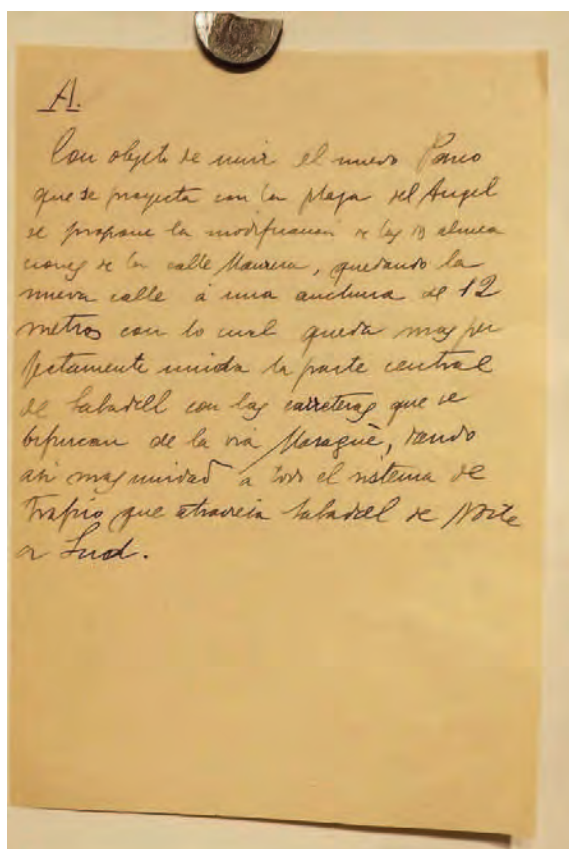 A.
Con objeto de unir el nuevo Paseo
que se proyecta con la plaza del Angel
se propone la modificacion de las alinea
ciones de la calle Manresa, quedando la
nueva calle á una anchura de 12
metros con lo cual queda mas per
fectamente unida la parte central
de Sabadell con las carreteras que se
bifurcan de la via Massagué, dando
asi mas unidad a todo el sistema de
trafico que atraviesa Sabadell de Norte
a Sud.